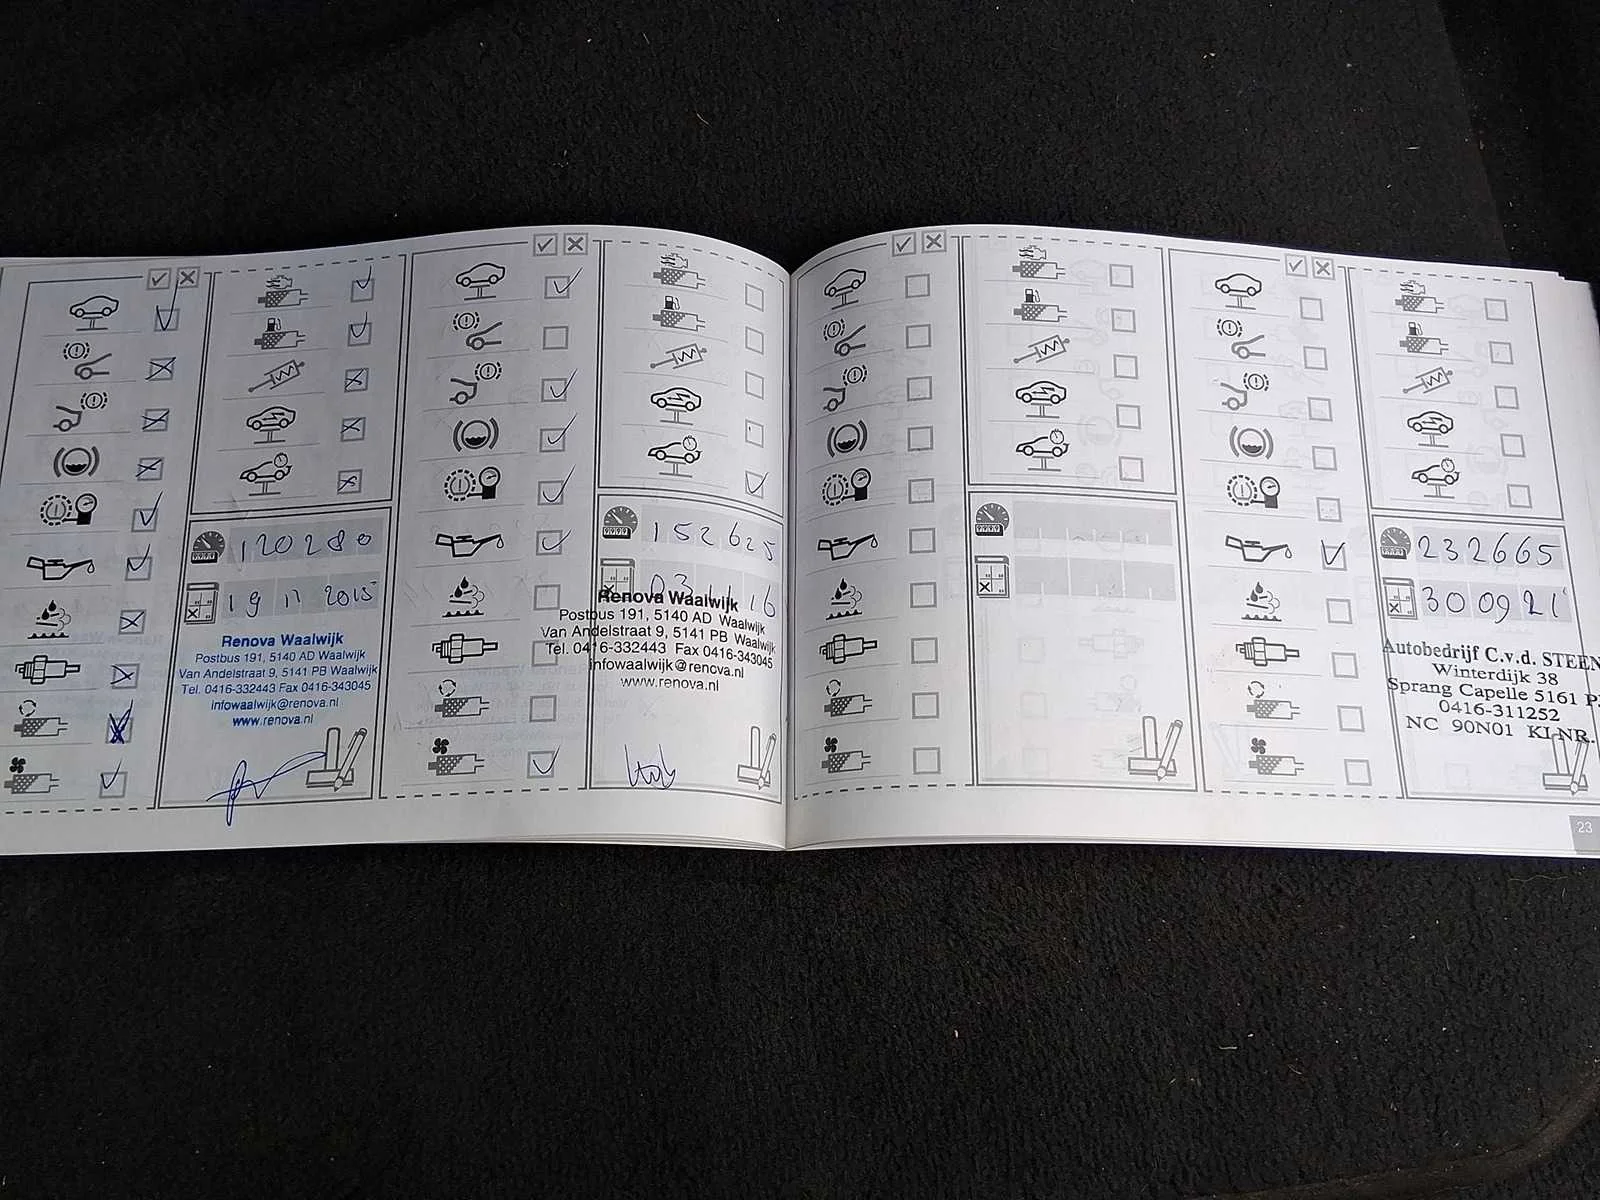 120280
19 11 2015
Renova Waalwijk
Postbus 191, 5140 AD Waalwijk
Van Andelstraat 9, 5141 PB Waalwijk
Tel. 0416-332443 Fax 0416-343045
infowaalwijk@renova.nl
www.renova.nl
152625
03 11 16
Renova Waalwijk
Postbus 191, 5140 AD Waalwijk
Van Andelstraat 9, 5141 PB Waalwijk
Tel. 0416-332443 Fax 0416-343045
infowaalwijk@renova.nl
www.renova.nl
232665
300921
Autobedrijf C.v.d. STEEN
Winterdijk 38
Sprang Capelle 5161 P
0416-311252
NC 90N01 KI.NR.
23